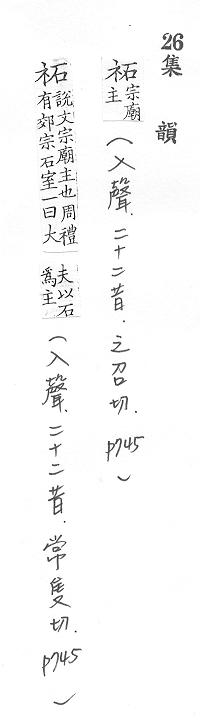 26集　韻
祏宗廟主（入聲．二十二昔．之石切．p745）
祏說文宗廟主也周禮有郊宗石室一曰大夫以石爲主（入聲．二十二昔．常隻切．p745）